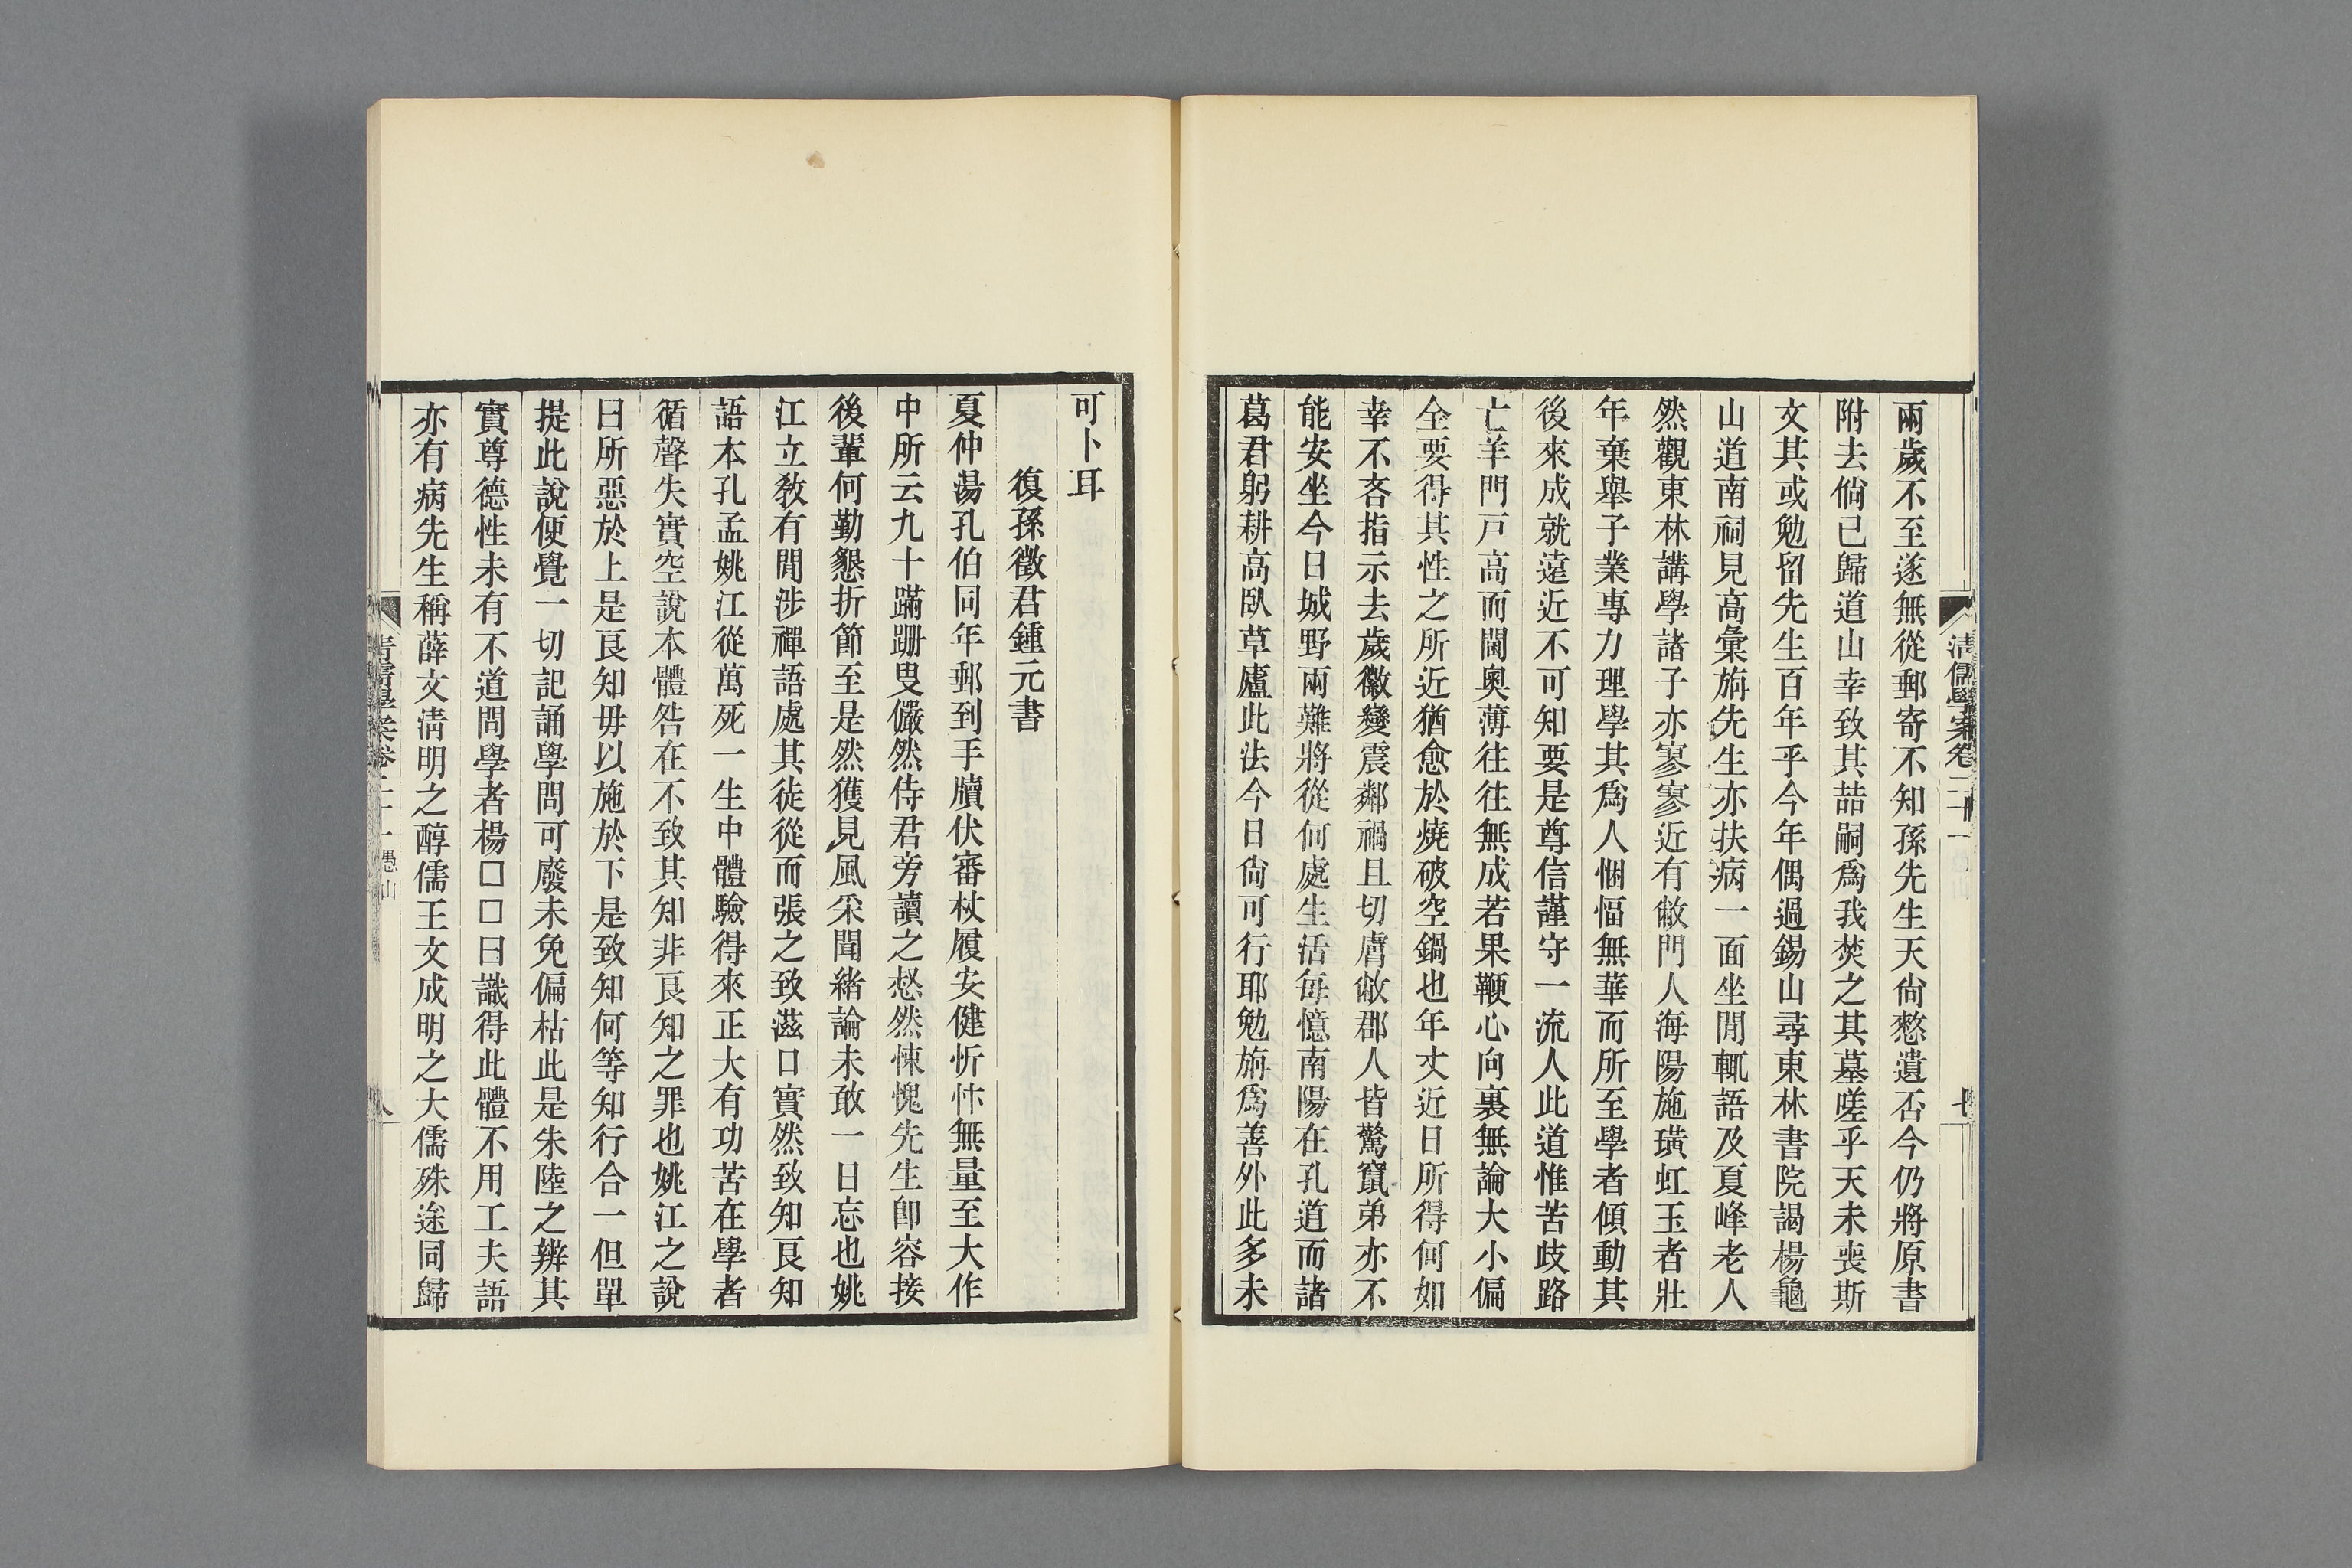 兩歲不至遂無從郵寄不知孫先生天尙憗遺否今仍將原書
附去倘已歸道山幸致其喆嗣爲我焚之其墓嗟乎天未喪斯
文其或勉留先生百年乎今年偶過錫山尋東林書院謁楊龜
山道南祠見高彙旃先生亦扶病一面坐閒輒語及夏峰老人
然觀東林講學諸子亦寥寥近有敝門人海陽施璜虹玉者壯
年棄舉子業專力理學其爲人悃愊無華而所至學者傾動其
後來成就遠近不可知要是尊信謹守一流人此道惟苦歧路
亡羊門戸高而閫奧薄往往無成若果鞭心向裏無論大小偏
全要得其性之所近猶愈於燒破空鍋也年丈近日所得何如
幸不吝指示去歲徽變震鄰禍且切膚敝郡人皆驚竄弟亦不
能安坐今日城野兩難將從何處生活每憶南陽在孔道而諸
葛君躬耕高臥草廬此法今日尙可行耶勉旃爲善外此多未
清儒學案卷二十一
七
可卜耳
復孫徵君鍾元書
夏仲湯孔伯同年郵到手牘伏審杖履安健忻忭無量至大作
中所云九十蹣跚叟儼然侍君旁讀之惄然悚愧先生卽容接
後輩何勤懇折節至是然獲見風采聞緒論未敢一日忘也姚
江立敎有閒涉禪語處其徒從而張之致滋口實然致知良知
語本孔孟姚江從萬死一生中體驗得來正大有功苦在學者
循聲失實空說本體咎在不致其知非良知之罪也姚江之說
曰所惡於上是良知毋以施於下是致知何等知行合一但單
提此說便覺一切記誦學問可廢未免偏枯此是朱陸之辨其
實尊德性未有不道問學者楊□□曰識得此體不用工夫語
亦有病先生稱薛文淸明之醇儒王文成明之大儒殊途同歸
清儒學案卷二十一 愚山
八